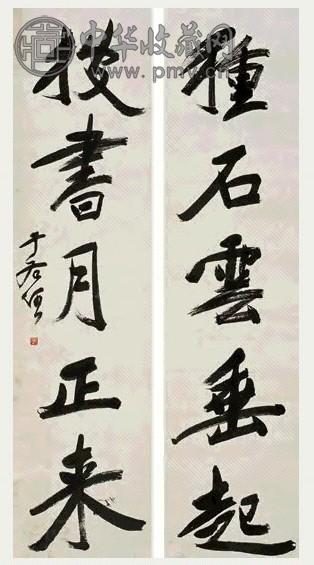 中华收藏网
www.pmv.cn
種石雲垂起
披書月正来
于右任